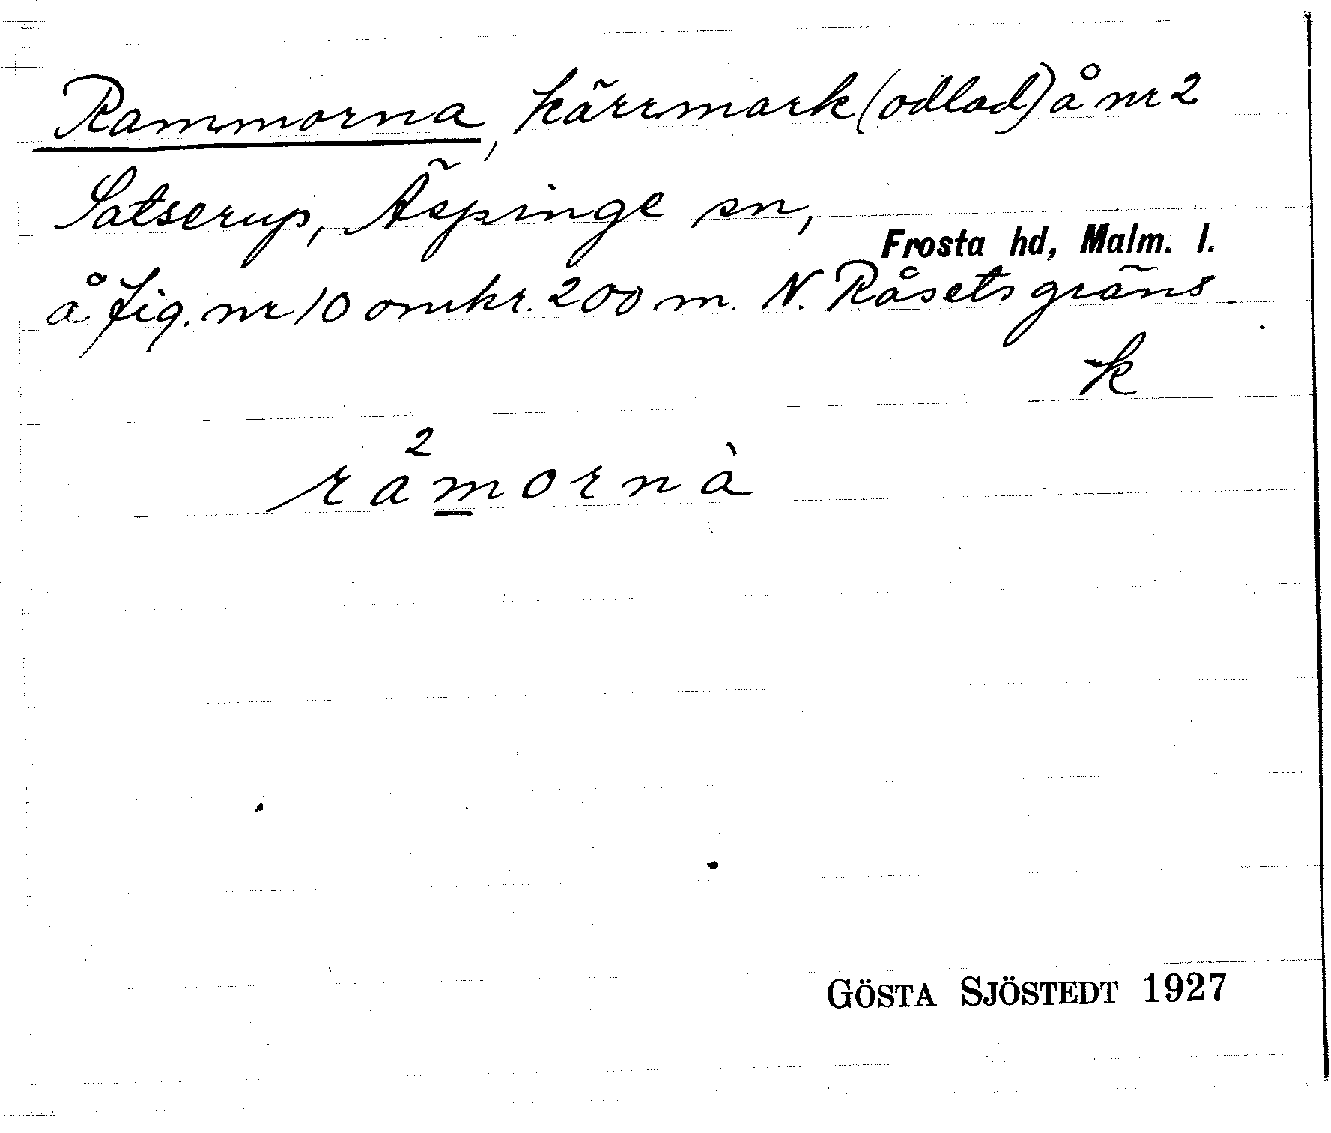 Rammorna, kärrmark (odlad) å nr 2
Satserup, Äspinge sn,
Frosta hd, Malm. l.
å fig. nr 10 omkr. 200 m. N. Råsets gräns
k
ra²mornà
GÖSTA SJÖSTEDT 1927